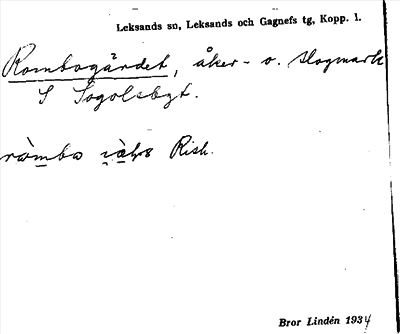 Leksands sn, Leksands och Gagnefs tg, Kopp. l.
Rombogärdet, åker- o. slogmark
S Sogolsbyt.
Risk.
Bror Lindén 1934